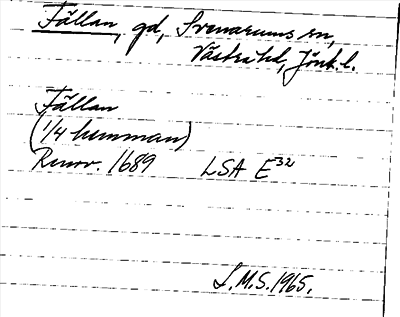 Fällan, gd, Svenarums sn,
Västra hd, Jönk. l.
Fällan
(1/4 hemman)
Renov. 1689 LSA E³²
I.M.S. 1965.